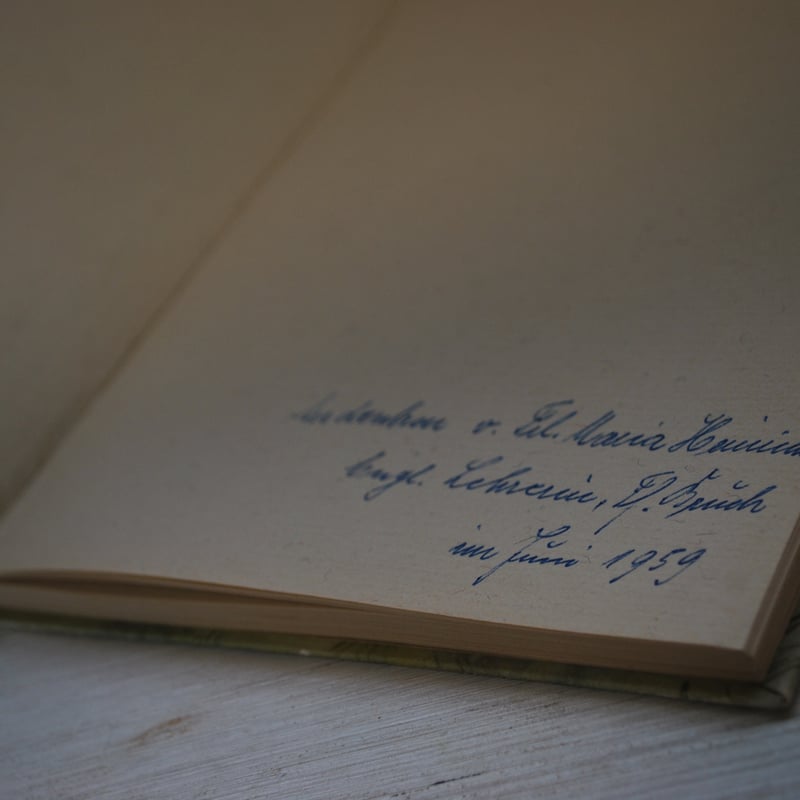 Andenken v. Frl. Maria
Engl. Lehrerin, Pf. Bruch
im Juni 1959